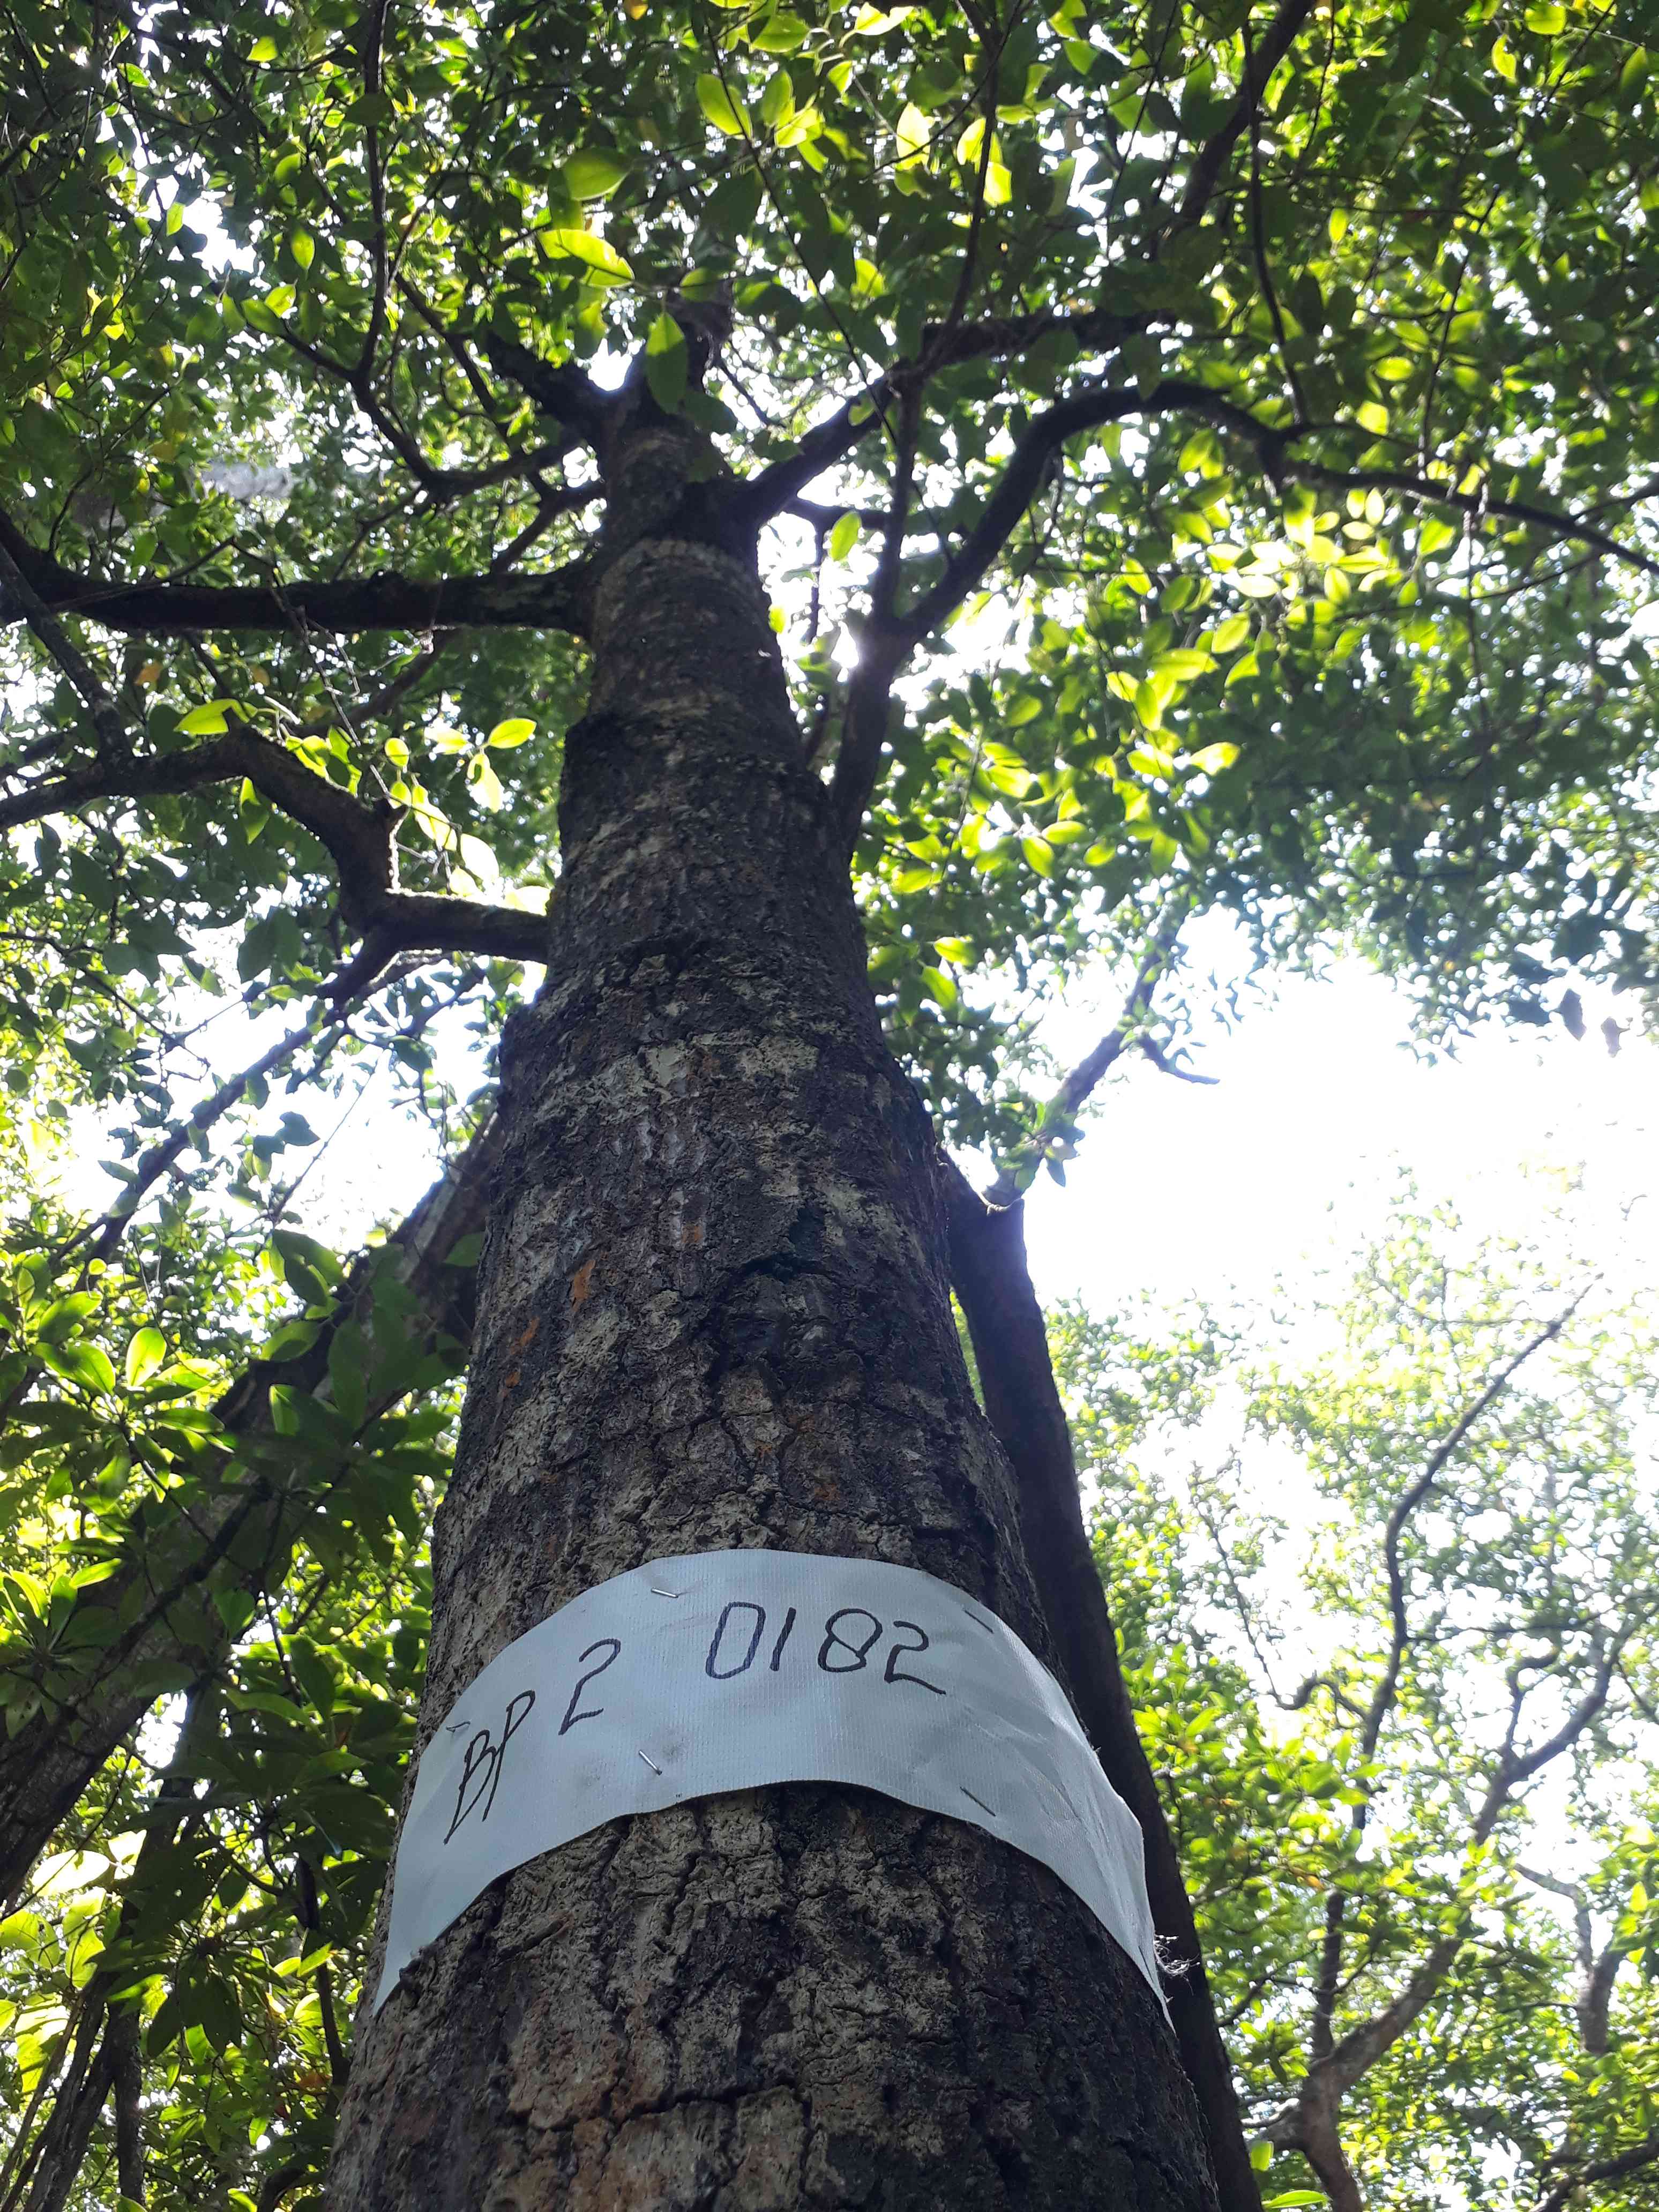 BP 2 0182